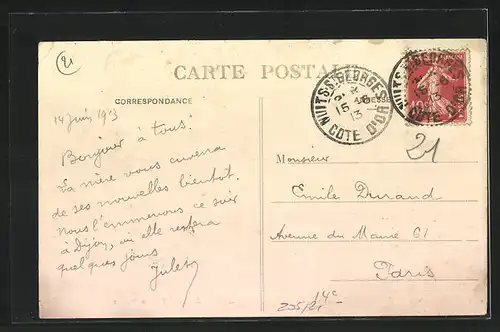 21
CARTE POSTALE
CORRESPONDANCE
ADRESSE
NUITS-St GEORGES
15-6
13
COTE D'OR
14 juin 1913
Bonjour à tous.
La mère vous enverra
de ses nouvelles bientôt.
Nous l'emmenons ce soir
à Dijon, où elle restera
quelques jours
Jules
21
Monsieur
Emile Durand
Avenue du Maine 61
Paris